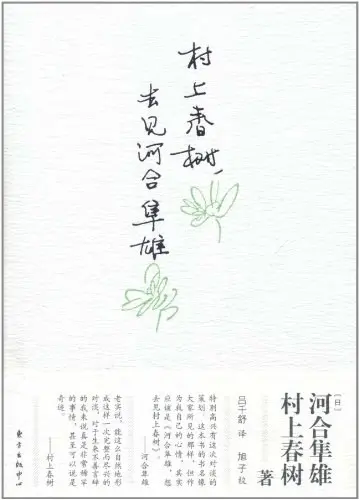 村上春树，
去见河合隼雄
[日]
河合隼雄
村上春树
著
吕千舒 译 旭子 校
特别高兴有这次对谈的
策划，这本书的书名像
大家所见的那样，但作
为我自己的心情，其实
应该是《河合隼雄，想
去见村上春树》。
——河合隼雄
老实说，能这么自然地形
成这样一次完整而尽兴的
对谈，对于生来不善言辞
的我来说真是非常稀罕
的事情，甚至可以说是
奇迹。
——村上春树
东方出版中心